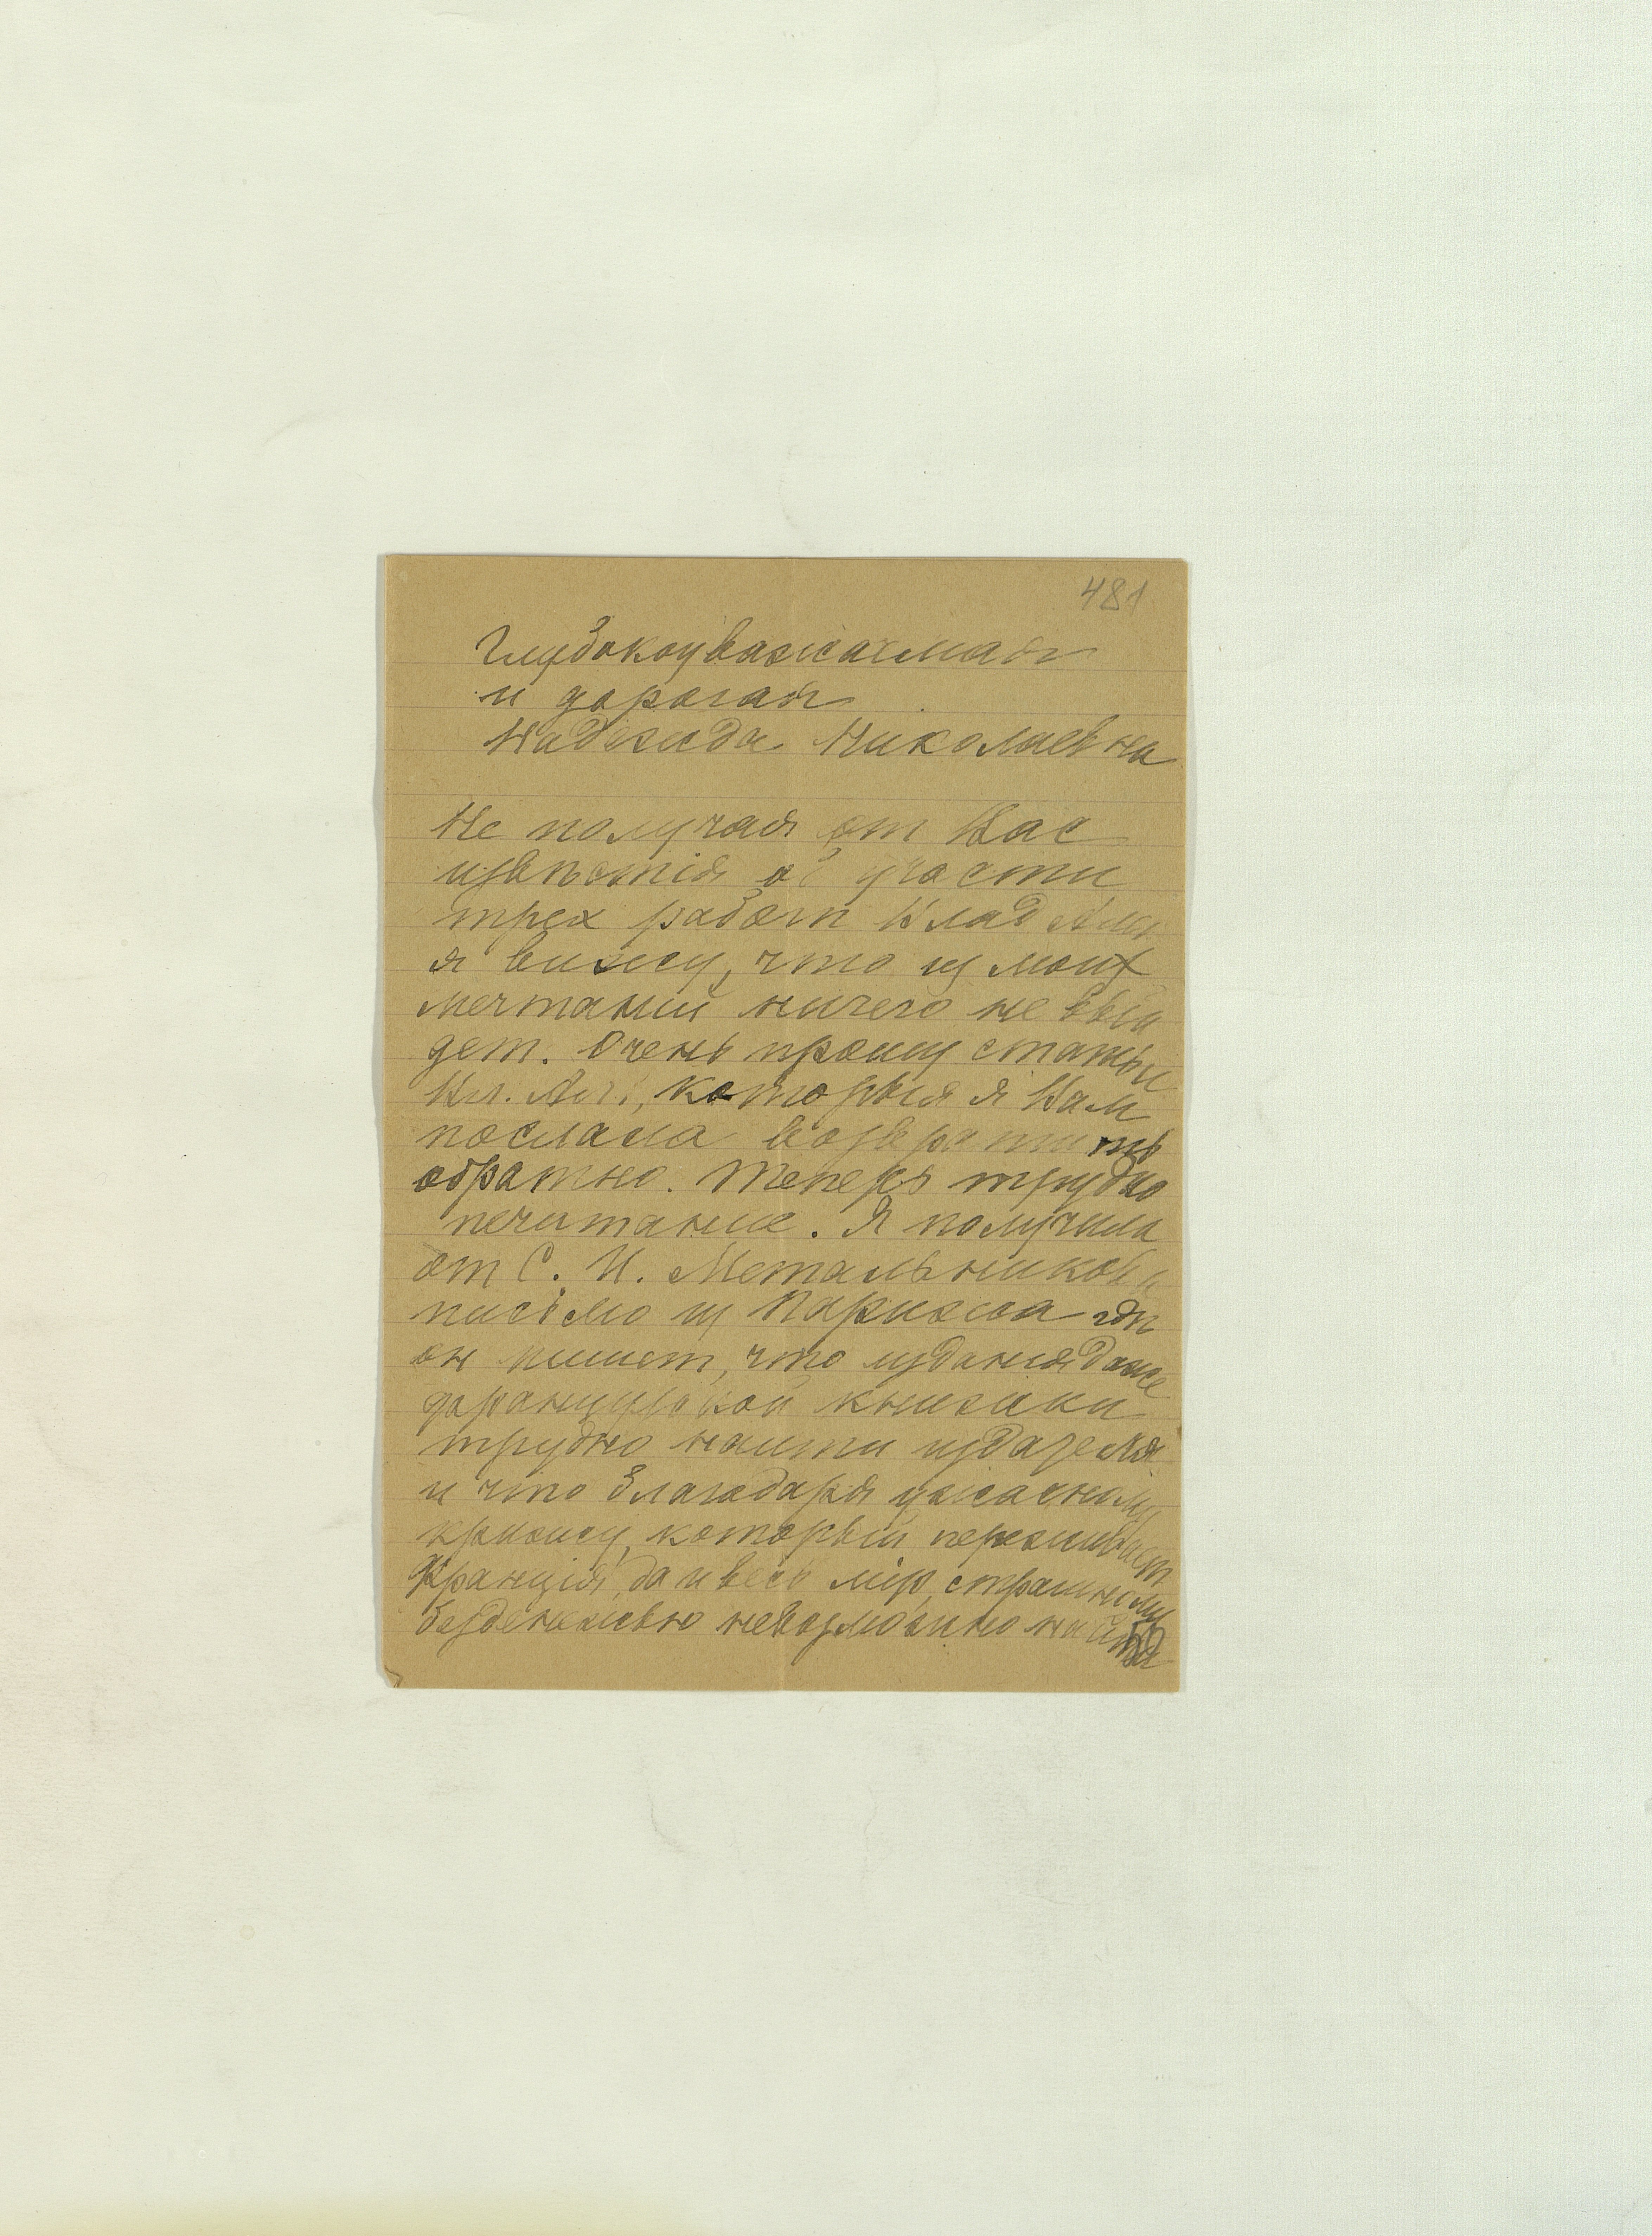 481
Глубокоуважаемая
и дорогая
Надежда Николаевна
Не получая от Вас
извѣстiя об участи
трех работ Влад
я вижу, что из моих
мечтаний ничего не вый
дет. Очень прошу статьи
Вл. Ал., которыя я Вам
послала возвратить
обратно. Теперь трудно
печатание. Я получила
от С. И. Метальникова
письмо из Парижа гдѣ
он пишет, что издания даже
французской книжки
трудно найти издателя
и что благодаря ужасному
кризису, который переживает
Францiя, да и весь мiр, страшному
безденежью невозможно найти